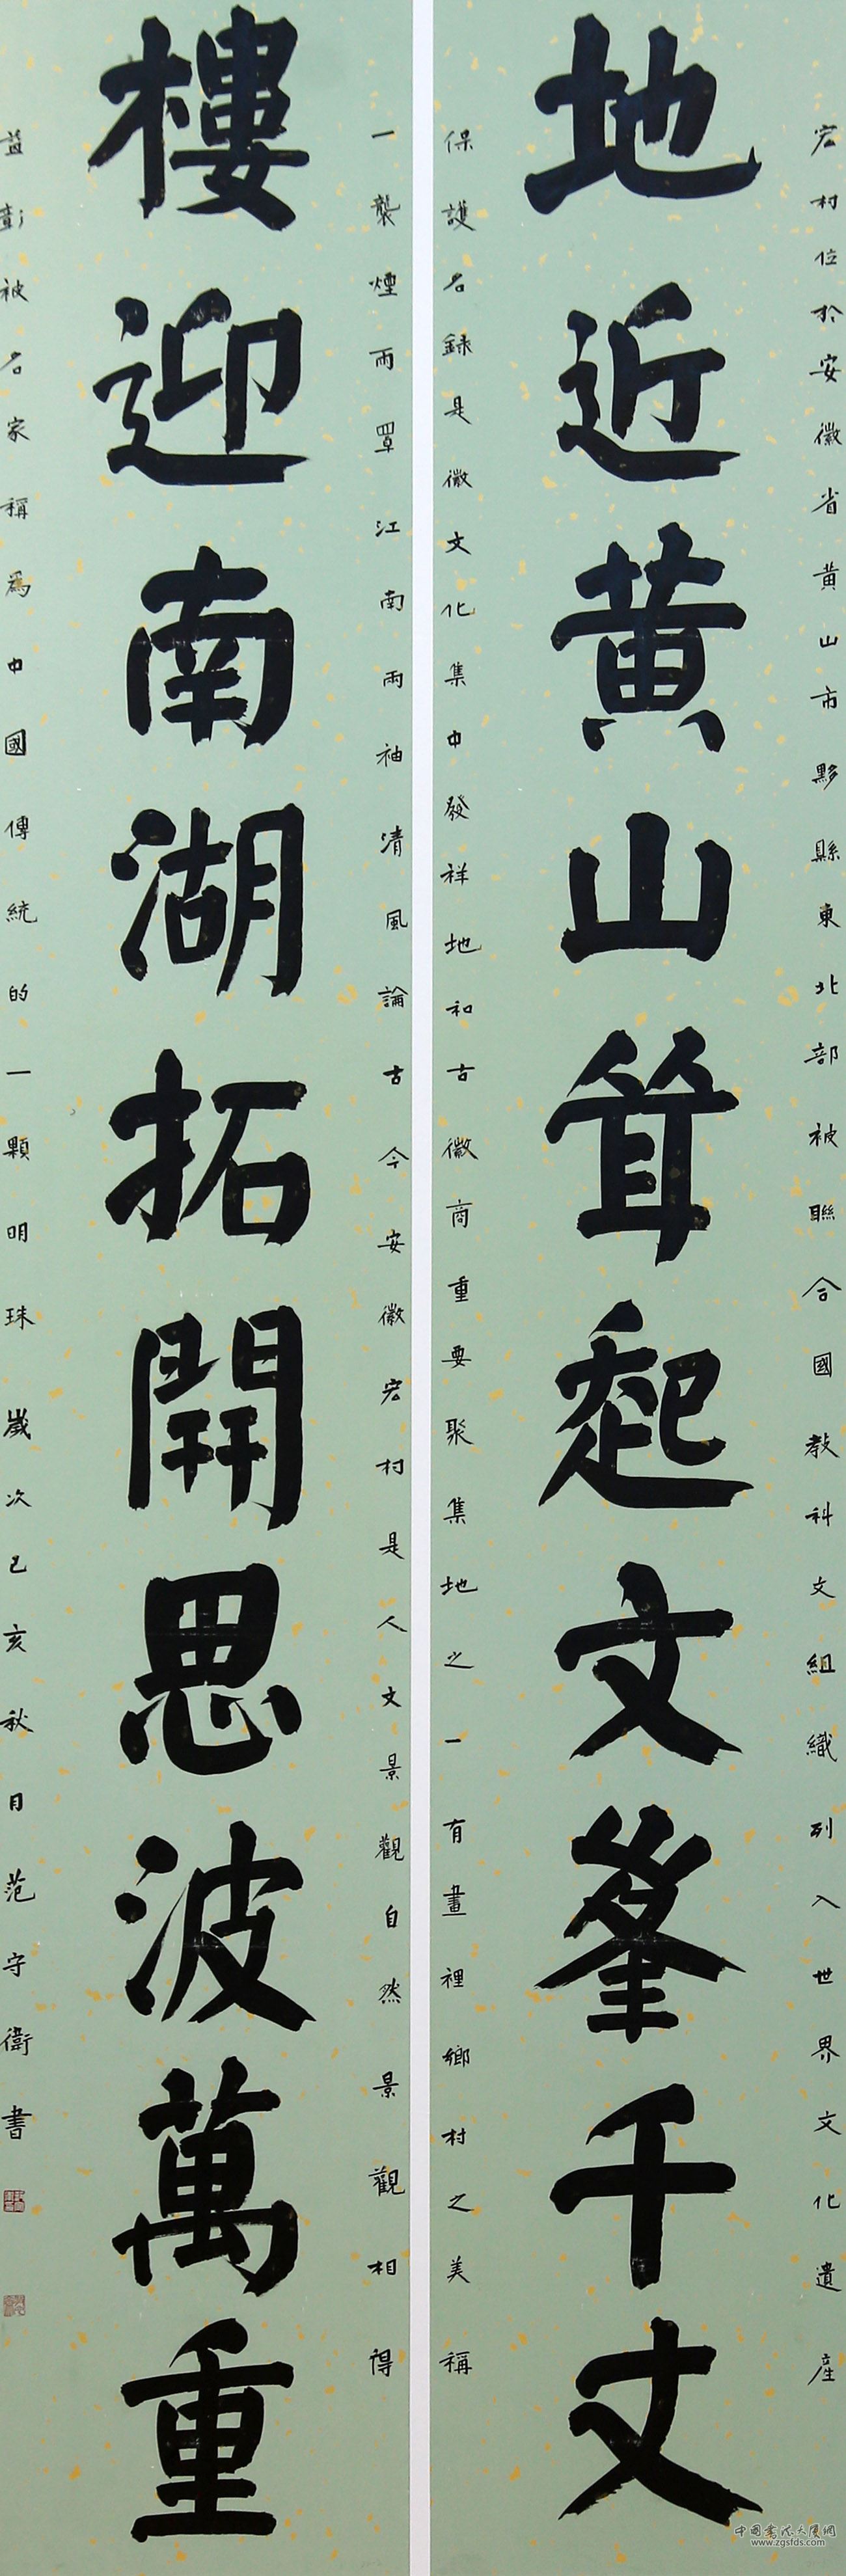 宏村位於安徽省黄山市黟縣東北部被聯合國教科文組織列入世界文化遺産
地近黄山聳起文峯千丈
保護名録是徽文化集中發祥地和古徽商重要聚集地之一有畫裡鄉村之美稱
一襲煙雨罩江南兩袖清風論古今安徽宏村是人文景觀自然景觀相得
樓迎南湖拓開思波萬重
益彰被名家稱爲中國傳統的一顆明珠 歲次己亥秋月范守衛書
中国書法大厦網
www.zgsfds.com